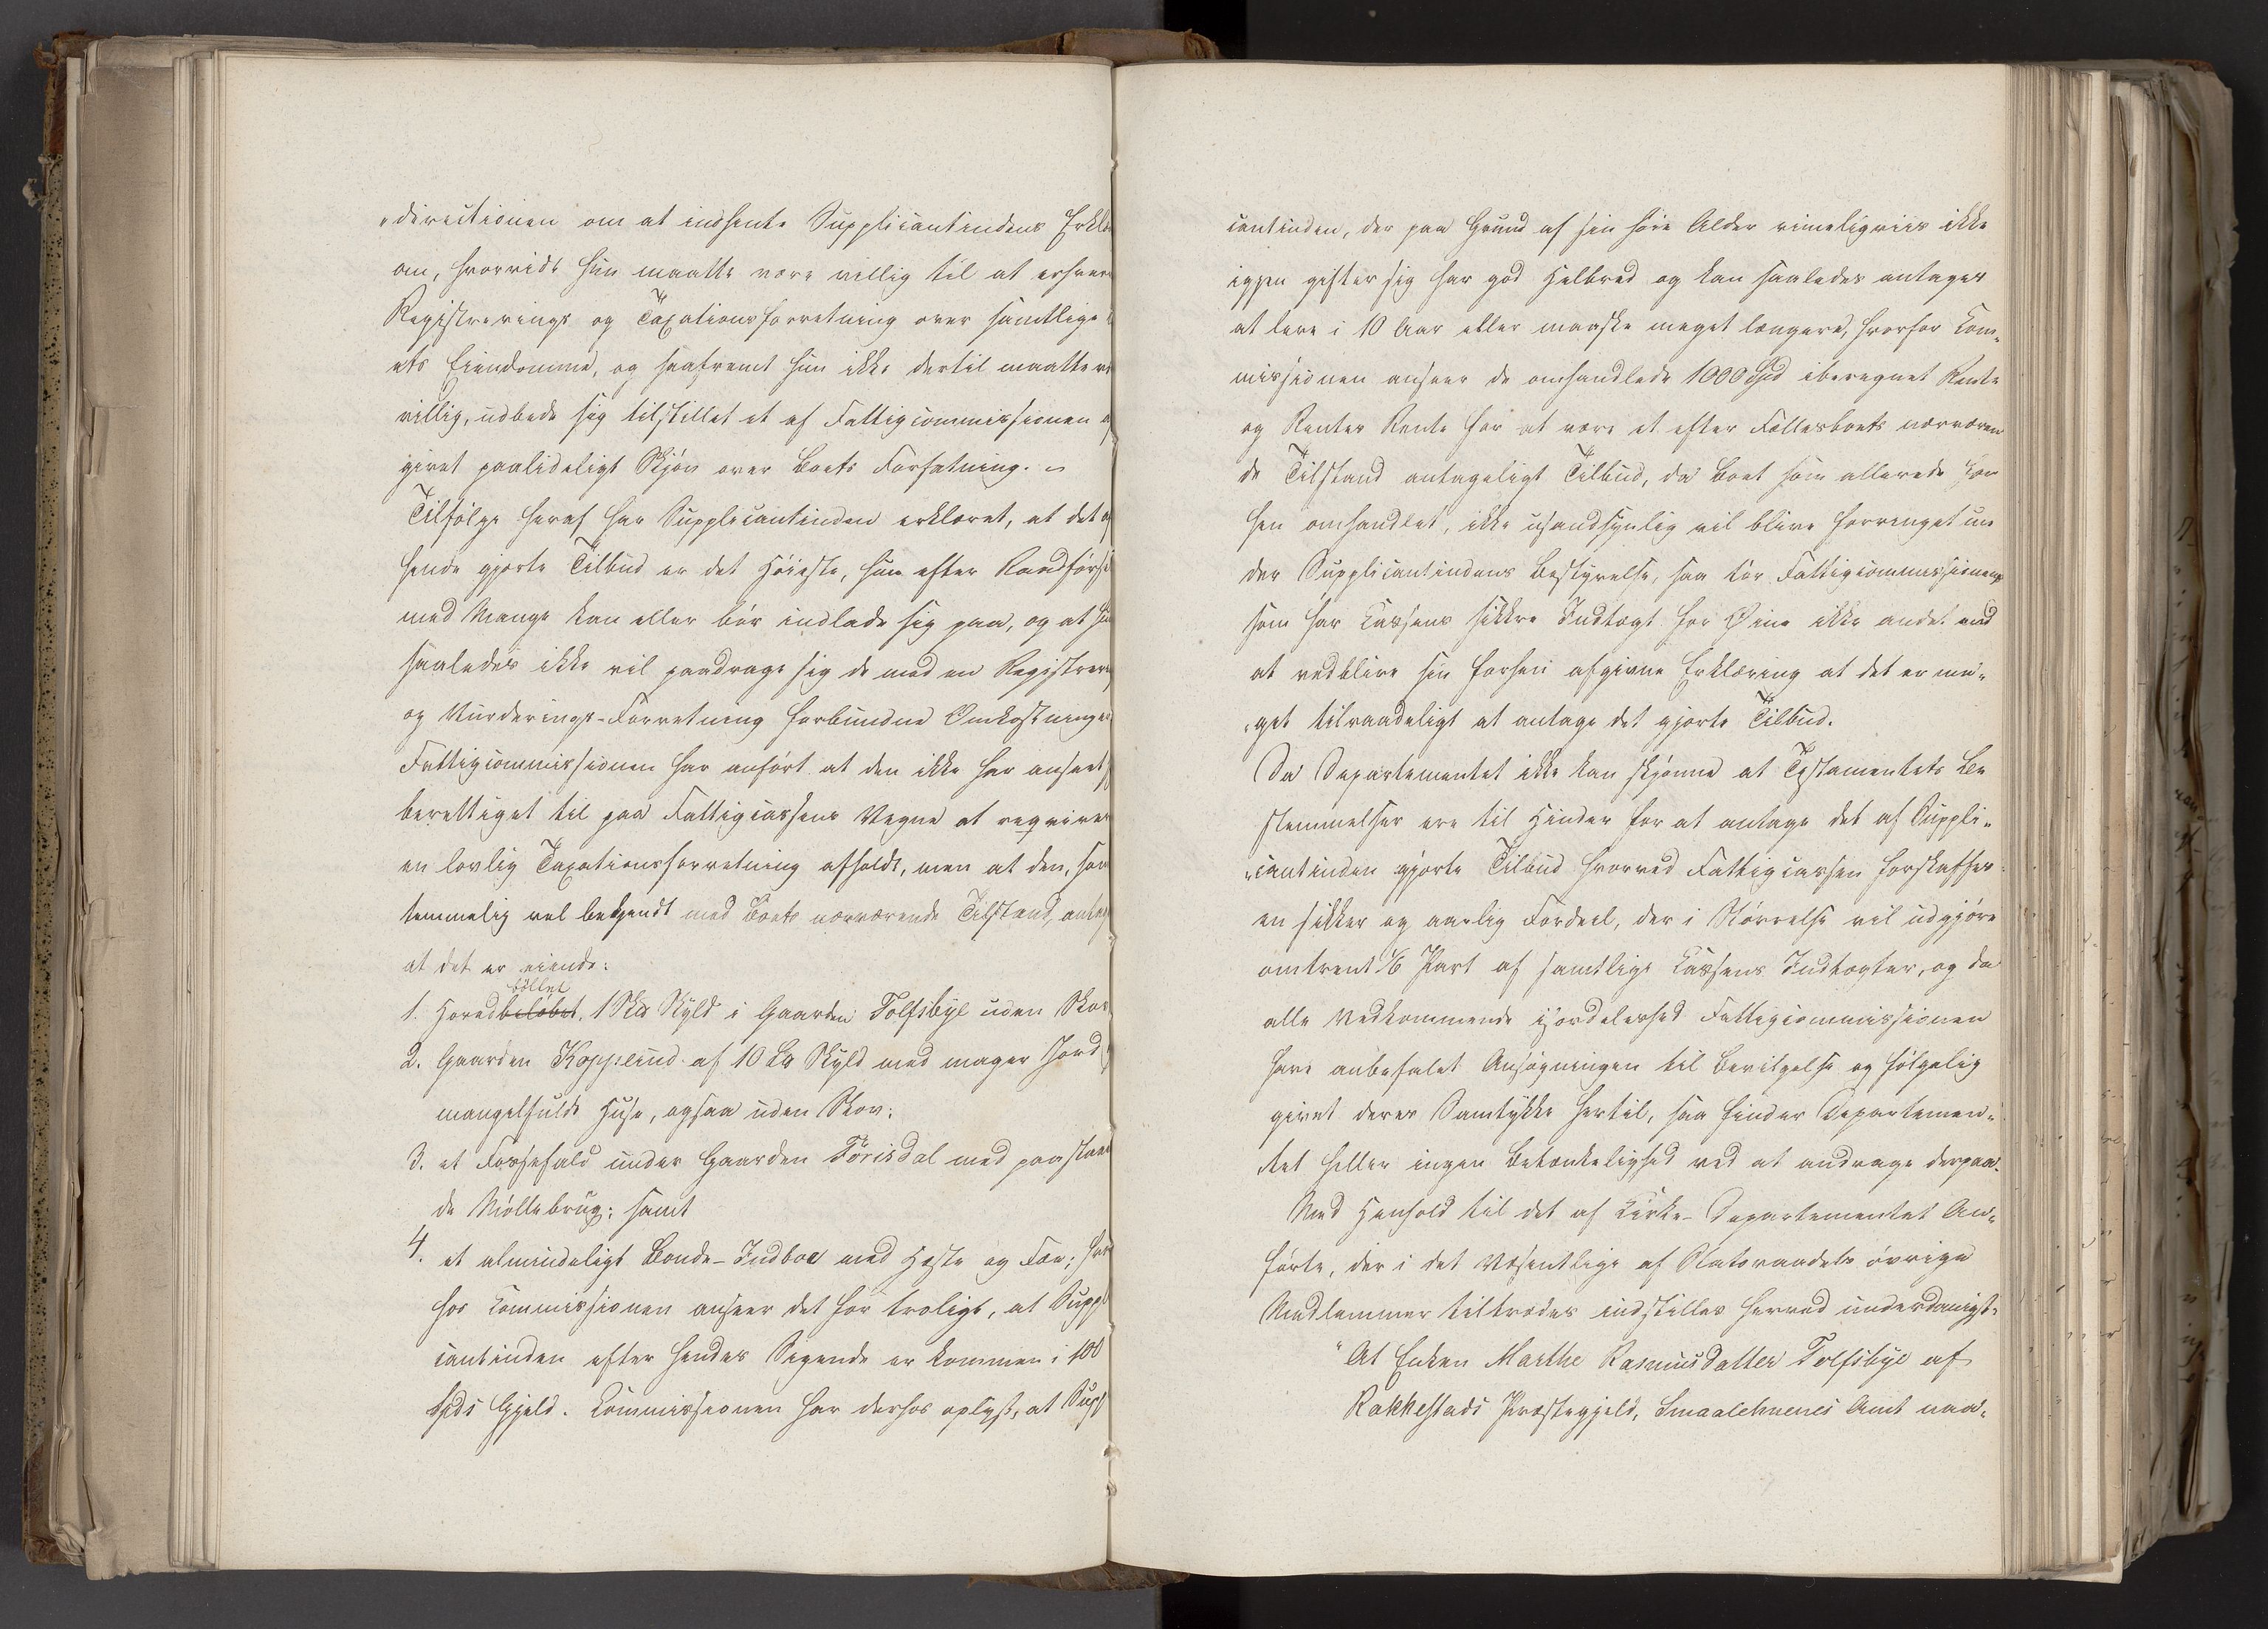 "directionen om at indhente Supplicantindens Erklæ
om, hvorvidt hun maatte være villig til at erhver
Registrerings og Taxationsforretning over samtlige
ets Eiendomme, og saafremt hun ikke dertil maatte væ
villig, udbede sig tilstillet et af Fattigcommissionen
givet paalideligt Skjøn over Boets Forfatning. –
Tilfølge heraf har Supplicantinden erklæret, at det a
hende gjorte Tilbud er det Høieste, hun efter Raadførs
med Mange kan eller bør indlade sig paa, og at hu
saaledes ikke vil paadrage sig de med en Registrer
og Vurderings-Forretning forbundne Omkostninger
Fattigcommissionen har anført at den ikke har anseet
berettiget til paa Fattigcassens Vegne at reqvirer
en lovlig Taxationsforretning afholdt, men at den, som
temmelig vel bekjendt med Boets nærværende Tilstand, antag
at det er eiende:
bøllet
1. Hovedbeløbet, 1 Skyld i Gaarden Tolfsbye uden Skov
2. Gaarden Kopperud af 10 Lɞ Skyld med mager Jord
mangelfulde Huse, ogsaa uden Skov;
3. et Fossefald under Gaarden Törisdal med paastaaen
de Møllebrug; samt
4. et almindeligt Bonde-Indboe med Heste og Fæe; hvor
hos Commissionen anseer det for troligt, at Suppl
cantinden efter hendes Sigende er kommen i 100
Spds Gjeld. Commissionen har derhos oplyst, at Suppl
cantinden, der paa Grund af sin høie Alder rimeligviis ikke
igjen gifter sig har god Helbred og kan saaledes antages
at leve i 10 Aar eller maaske meget længere, hvorfor Com„
missionen anseer de omhandlede 1000 Spd iberegnet Rente
og Renters Rente for at være et efter Fællesboets nærværen
de Tilstand antageligt Tilbud, da Boet som allerede for
hen omhandlet, ikke usandsynlig vil blive forringet un
der Supplicantindens Bestyrelse, saa tør Fattigcommissionen
som har Cassens sikkre Indtægt for Øine ikke andet end
at vedblive sin forhen afgivne Erklæring at det er me„
„get tilraadeligt at antage det gjorte Tilbud.
Da Departementet ikke kan skjønne at Testamentets Be
stemmelser ere til Hinder for at antage det af Suppli„
„cantinden gjorte Tilbud hvorved Fattigcassen forskaffes
en sikker og aarlig Fordeel, der i Størrelse vil udgjøre
omtrent 1/6 Part af samtlige Cassens Indtægter, og da
alle Vedkommende iførdelerhed Fattigcommissionen
have anbefalet Ansøgningen til Bevilgelse og følgelig
givet deres Samtykke hertil, saa finder Departemen„
tet heller ingen Betænkelighed ved at andrage derpaa.
Med Henhold til det af Kirke-Departementet An„
førte, der i det Væsentlige af Statsraadets øvrige
Medlemmer tiltrædes indstilles herved underdanigst:
"At Enken Marthe Rasmusdatter Tolfsbye af
Rakkestads Præstegjeld, Smaalehnenes Amt maa„